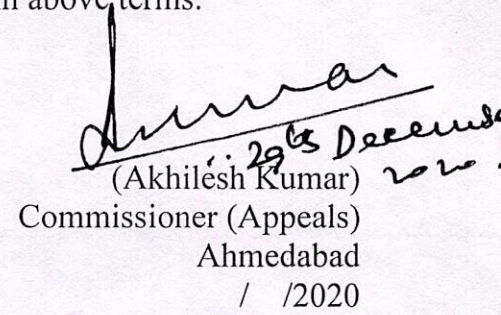 in above terms.
29th December
2020.
(Akhilesh Kumar)
Commissioner (Appeals)
Ahmedabad
/ /2020